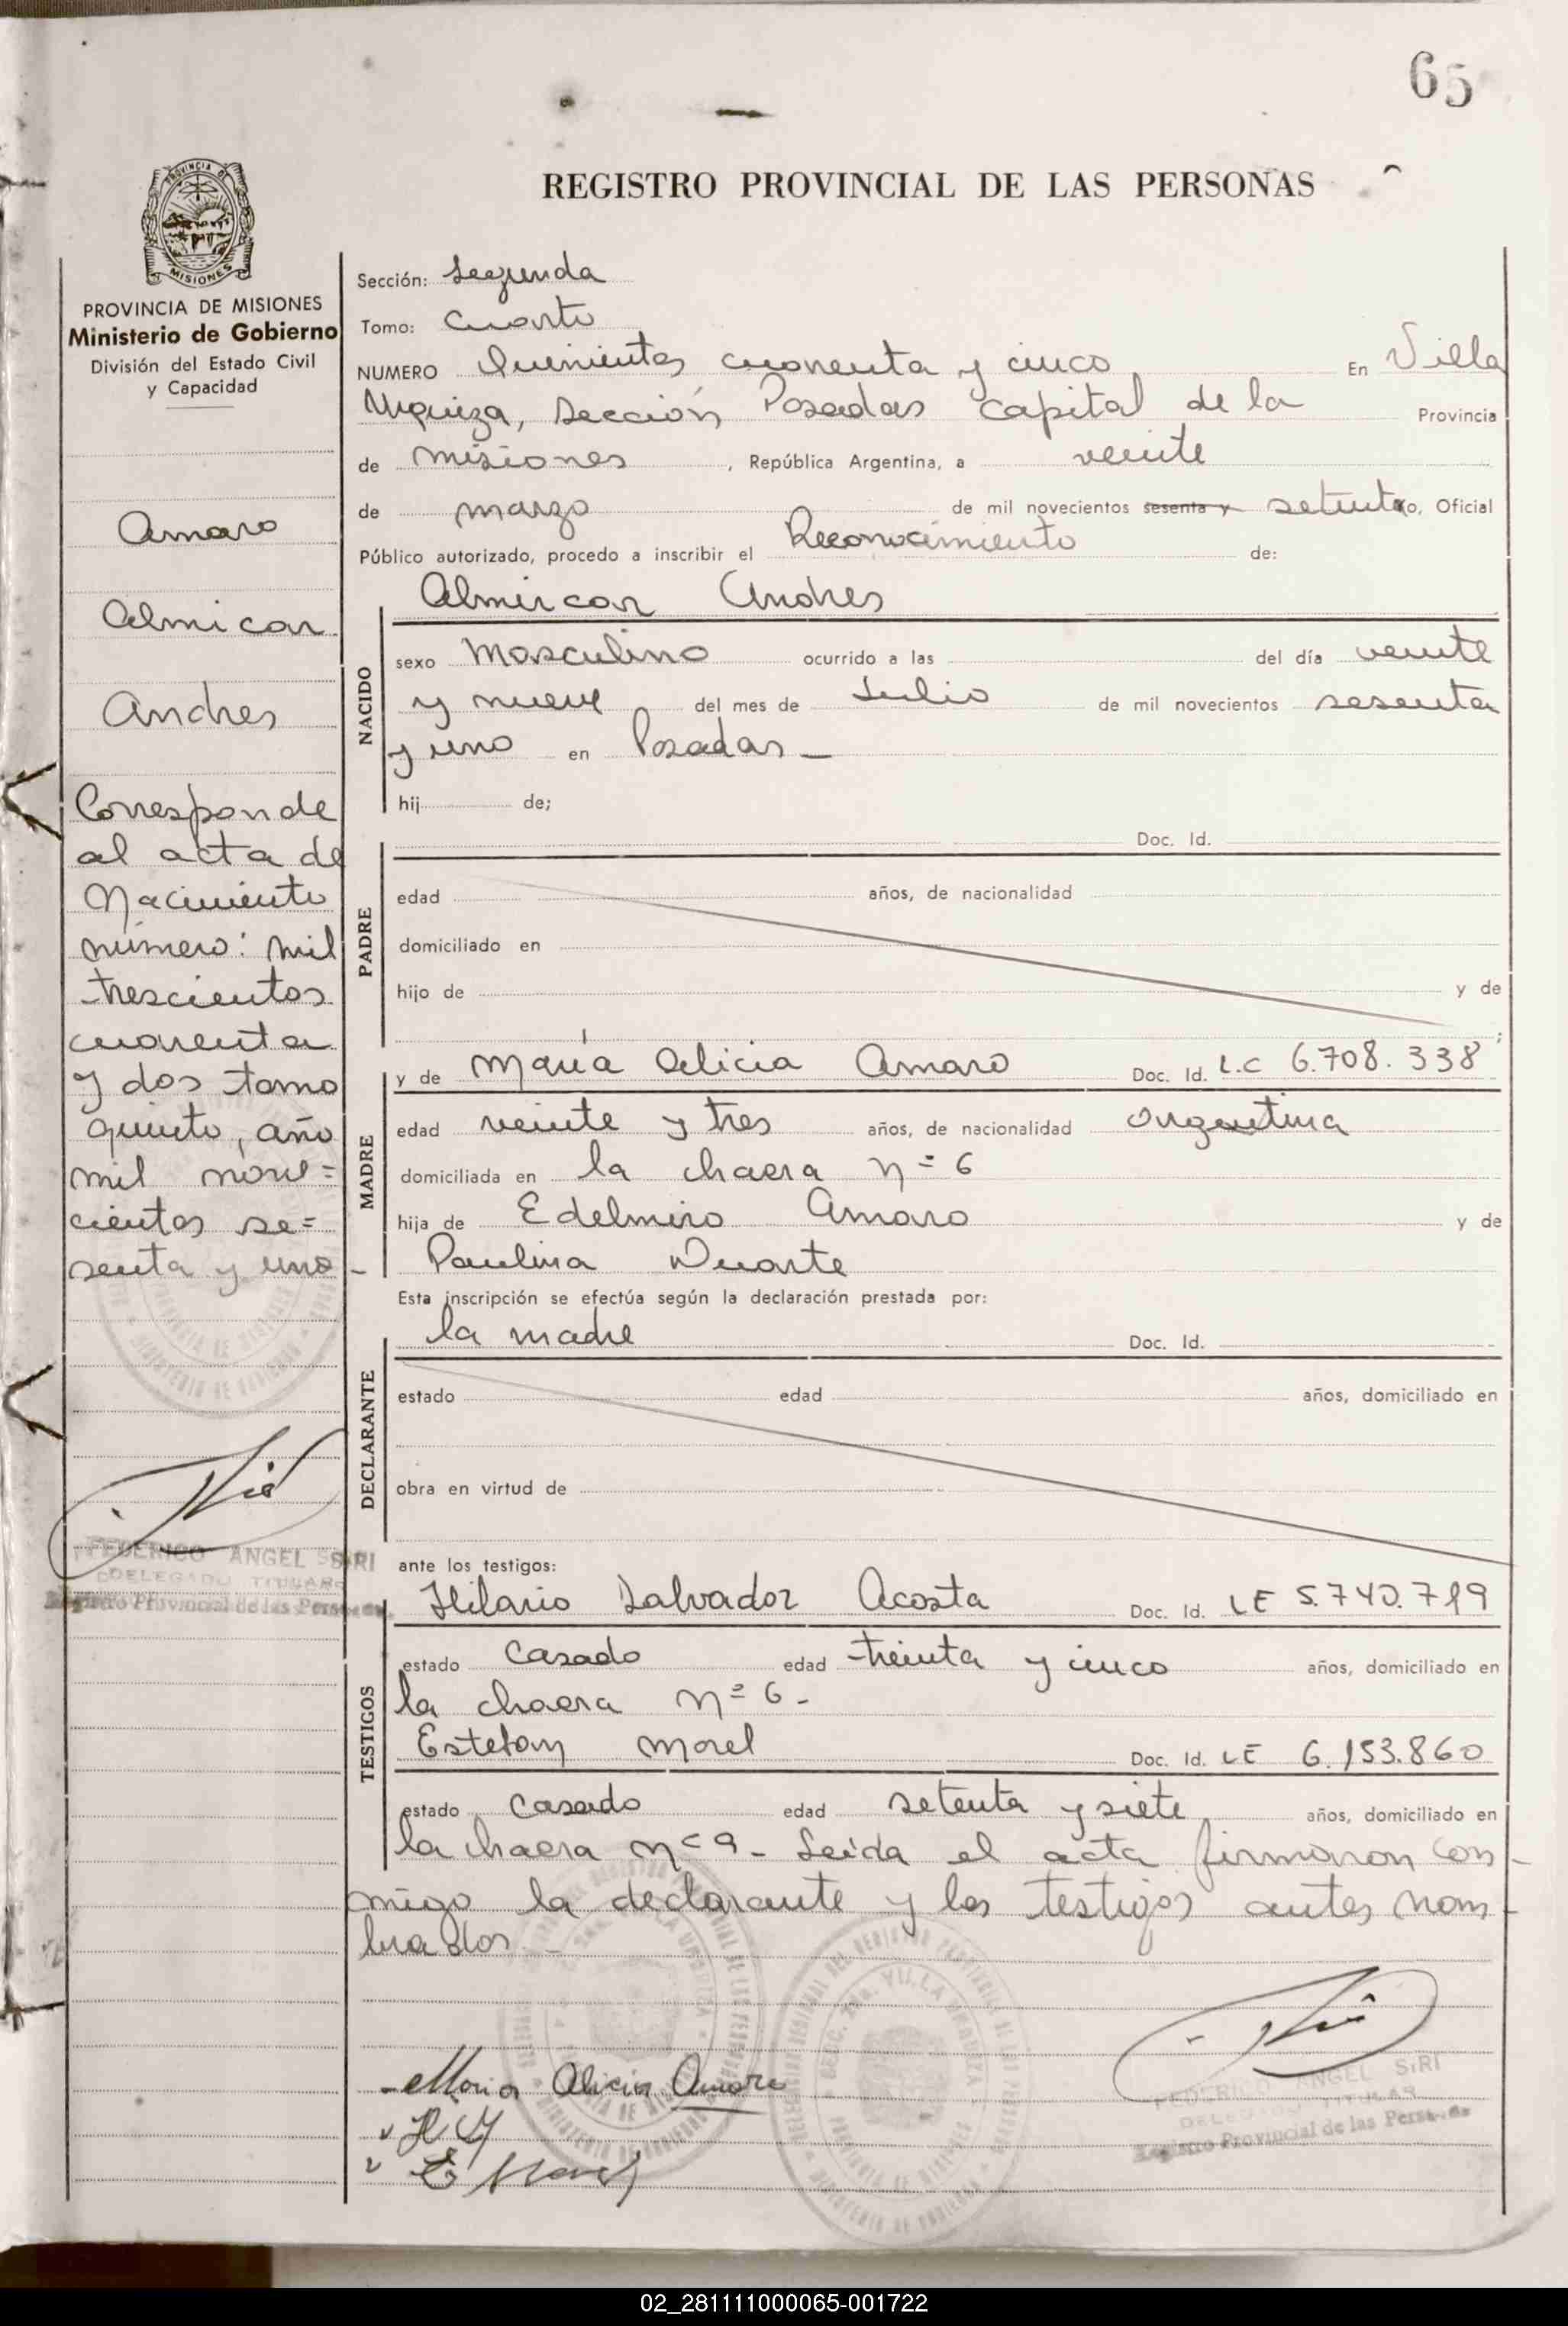 65
REGISTRO PROVINCIAL DE LAS PERSONAS
PROVINCIA DE
MISIONES
PROVINCIA DE MISIONES
Ministerio de Gobierno
División del Estado Civil
y Capacidad
Amaro
Almicar
Andres
Corresponde
al acta de
Nacimiento
número: mil
trescientos
cuarenta
y dos tomo
quinto, año
mil nove=
cientos se=
senta y uno -
FEDERICO ANGEL SIRI
DELEGADO TITULAR
Registro Provincial de las Personas
Sección: Segunda
Tomo: Cuarto
NUMERO Quinientos cuarenta y cinco En Villa
Urquiza, Sección Posadas Capital de la Provincia
de Misiones, República Argentina, a veinte
de marzo de mil novecientos sesenta y setenta yo, Oficial
Público autorizado, procedo a inscribir el Reconocimiento de:
Almircar Andres
NACIDO
sexo Masculino ocurrido a las del día veinte
y nueve del mes de Julio de mil novecientos sesenta
y uno en Posadas -
hij de;
Doc. Id.
PADRE
edad años, de nacionalidad
domiciliado en
hijo de y de
;
MADRE
y de María Alicia Amaro Doc. Id. L.C 6.708.338
edad veinte y tres años, de nacionalidad argentina
domiciliada en la chacra nº 6
hija de Edelmiro Amaro y de
Paulina Duarte
Esta inscripción se efectúa según la declaración prestada por:
la madre Doc. Id.
DECLARANTE
estado edad años, domiciliado en
obra en virtud de
ante los testigos:
TESTIGOS
Hilario Salvador Acosta Doc. Id. LE 5.740.719
estado Casado edad treinta y cinco años, domiciliado en
la chacra nº 6 -
Esteban Morel Doc. Id. LE 6.153.860
estado Casado edad setenta y siete años, domiciliado en
la chacra nº 9 - Leída el acta firmaron con-
migo la declarante y los testigos antes nom-
brados -
- Maria Alicia Amaro
E Morel
FEDERICO ANGEL SIRI
DELEGADO TITULAR
Registro Provincial de las Personas
02_281111000065-001722